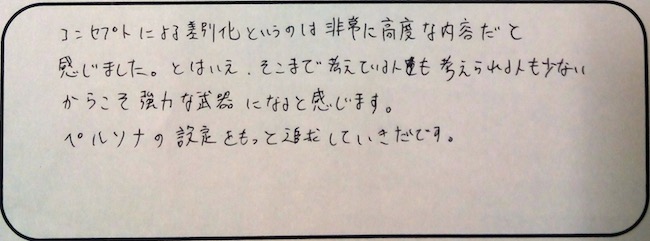 コンセプトによる差別化というのは非常に高度な内容だと
感じました。とはいえ、そこまで考えている人達も考えられる人も少ない
からこそ強力な武器になると感じます。
ペルソナの設定をもっと追求していきたいです。